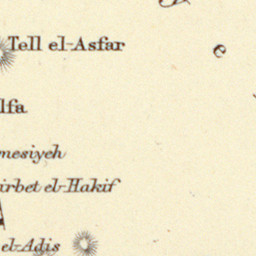 Tell el-Asfar
e
lfa
mesiyeh
irbet el-Hakif
el-Adis